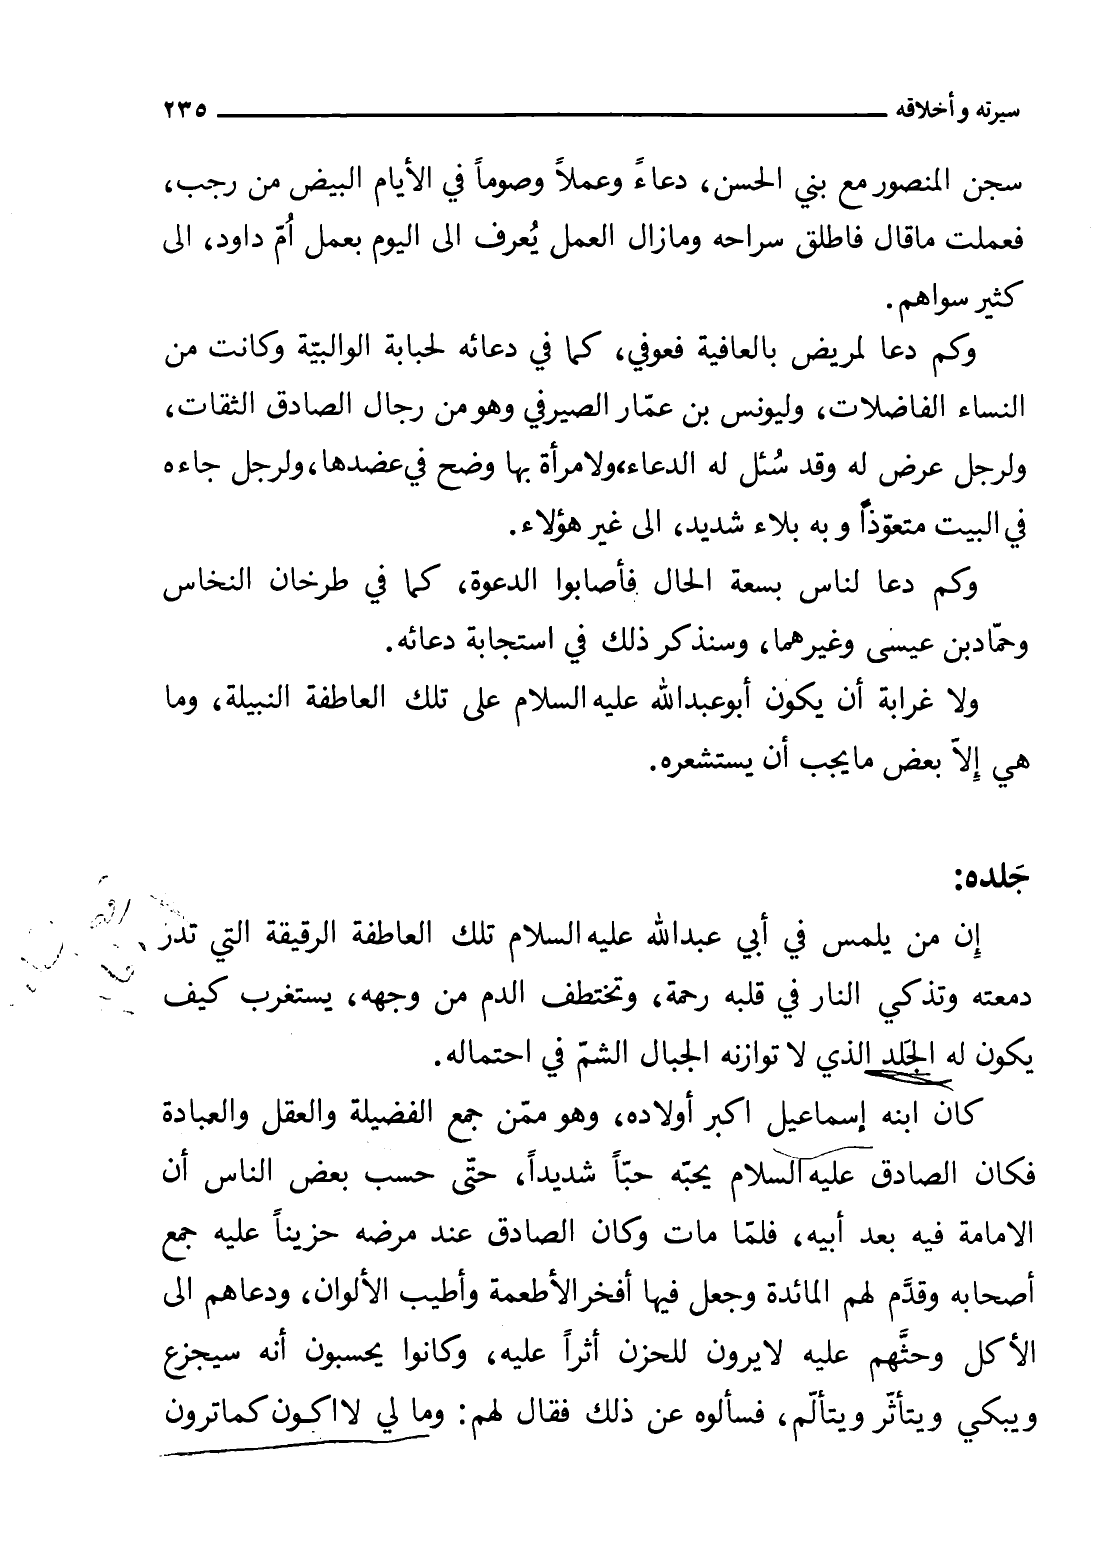 سيرته و أخلاقه ٢٣٥
سجن المنصور مع بني الحسن، دعاءً وعملاً وصوماً في الأيام البيض من رجب،
فعملت ماقال فاطلق سراحه ومازال العمل يُعرف الى اليوم بعمل اُمّ داود، الى
كثير سواهم.
وكم دعا لمريض بالعافية فعوفي، كما في دعائه لحبابة الوالبيّة وكانت من
النساء الفاضلات، وليونس بن عمّار الصيرفي وهو من رجال الصادق الثقات،
ولرجل عرض له وقد سُئل له الدعاء، ولامرأة بها وضح في عضدها، ولرجل جاءه
في البيت متعوّذاً و به بلاء شديد، الى غير هؤلاء.
وكم دعا لناس بسعة الحال فأصابوا الدعوة، كما في طرخان النخاس
وحمّادبن عيسى وغيرهما، وسنذكر ذلك في استجابة دعائه.
ولا غرابة أن يكون أبوعبدالله عليه السلام على تلك العاطفة النبيلة، وما
هي إلاّ بعض مايجب أن يستشعره.
جَلده:
إن من يلمس في أبي عبدالله عليه السلام تلك العاطفة الرقيقة التي تدر
دمعته وتذكي النار في قلبه رحمة، وتختطف الدم من وجهه، يستغرب كيف
يكون له الجَلد الذي لا توازنه الجبال الشمّ في احتماله.
كان ابنه إسماعيل اكبر أولاده، وهو ممّن جمع الفضيلة والعقل والعبادة
فكان الصادق عليه السلام يحبّه حبّاً شديداً، حتّى حسب بعض الناس أن
الامامة فيه بعد أبيه، فلمّا مات وكان الصادق عند مرضه حزيناً عليه جمع
أصحابه وقدَّم لهم المائدة وجعل فيها أفخر الأطعمة وأطيب الألوان، ودعاهم الى
الأكل وحثَّهم عليه لايرون للحزن أثراً عليه، وكانوا يحسبون أنه سيجزع
ويبكي ويتأثّر ويتألّم، فسألوه عن ذلك فقال لهم: وما لي لااكون كماترون